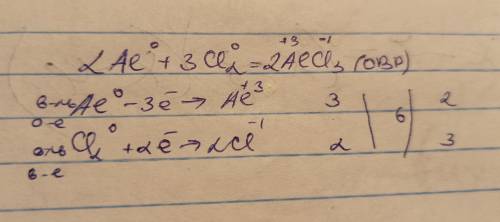 2Al⁰ + 3Cl₂⁰ = 2Al⁺³Cl₃⁻¹ (ОВР)
в-ль Al⁰ - 3ē → Al⁺³ 3 | 6 | 2
о-е
ок-ль Cl₂⁰ + 2ē → 2Cl⁻¹ 2 | | 3
в-е